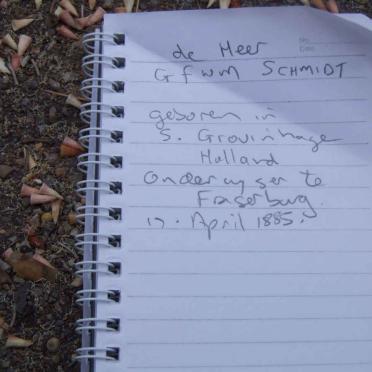 de Heer
No.
Date
GFWM SCHMIDT
geboren in
S. Grovinhage
Holland
Onderwyser te
Fraserburg.
17. April 1885.